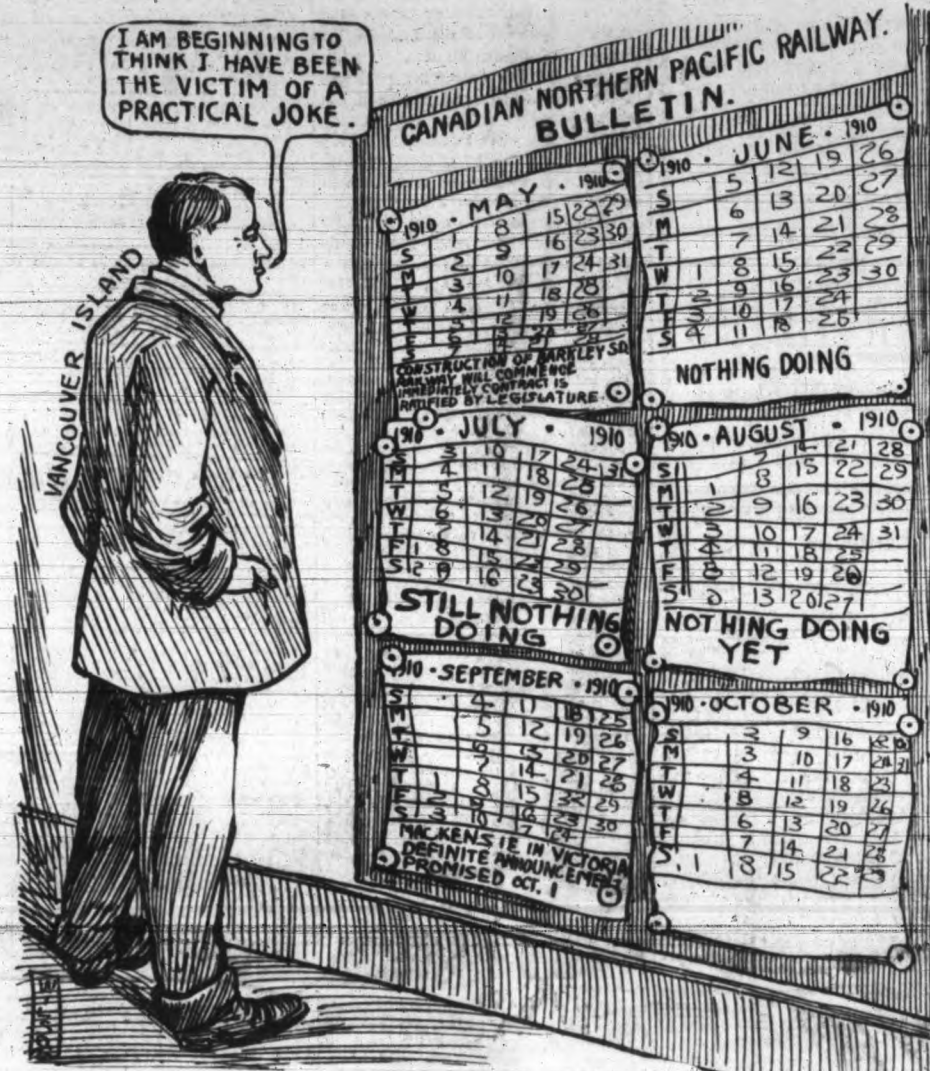 I AM BEGINNING TO
THINK I HAVE BEEN
THE VICTIM OF A
PRACTICAL JOKE.
VANCOUVER ISLAND
CANADIAN NORTHERN PACIFIC RAILWAY.
BULLETIN.
1910 · MAY · 1910
S 1 8 15 22 29
M 2 9 16 23 30
T 3 10 17 24 31
W 4 11 18
T 12 19
F
S
CONSTRUCTION OF BARKLEY SD.
RAILWAY WILL COMMENCE
IMMEDIATELY CONTRACT IS
RATIFIED BY LEGISLATURE.
1910 · JUNE · 1910
S 5 12 19 26
M 6 13 20 27
T 7 14 21 28
W 1 8 15 22 29
T 2 9 16 23 30
F 3 10 17 24
S 4 11 18
NOTHING DOING
1910 · JULY · 1910
S 3 10 17 24 31
M 4 11 18
T 5 12 19 26
W 6 13 20 27
T 7 14 21 28
F 1 8 15 22 29
S 2 16 23 30
STILL NOTHING
DOING
1910 · AUGUST · 1910
S 7 14 21 28
M 1 8 15 22 29
T 2 9 16 23 30
W 3 10 17 24 31
T 4 11 18 25
F 12 19
S 13 20 27
NOTHING DOING
YET
1910 · SEPTEMBER · 1910
S 4 11 18 25
M 5 12 19 26
T 6 13 20 27
W 7 14 21 28
T 1 8 15 29
F 2 9 16 23 30
S 3 10
MACKENSIE IN VICTORIA
DEFINITE ANNOUNCEMENT
PROMISED OCT. 1
1910 · OCTOBER · 1910
S 2 9 16
M 3 10 17
T 4 11 18
W 12 19 26
T 6 13 20 27
F 7 14 21 28
S 1 8 15 22 29